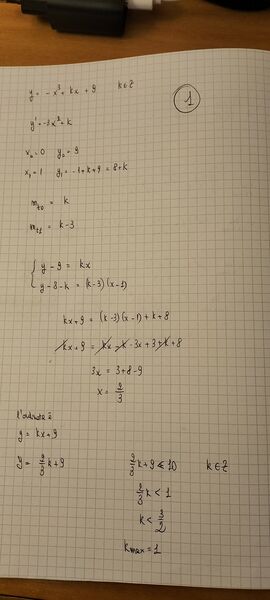 y = -x³ + kx + 9 k∈Z
1
y' = -3x² + k
x₀ = 0 y₀ = 9
x₁ = 1 y₁ = -1 + k + 9 = 8 + k
m_t0 = k
m_t1 = k - 3
{ y - 9 = kx
y - 8 - k = (k-3)(x-1)
kx + 9 = (k-3)(x-1) + k + 8
kx + 9 = kx - k - 3x + 3 + k + 8
3x = 3 + 8 - 9
x = 2/3
l'ordinata è
y = kx + 9
y = 2/3 k + 9 2/3 k + 9 < 10 k∈Z
2/3 k < 1
k < 3/2
k max = 1